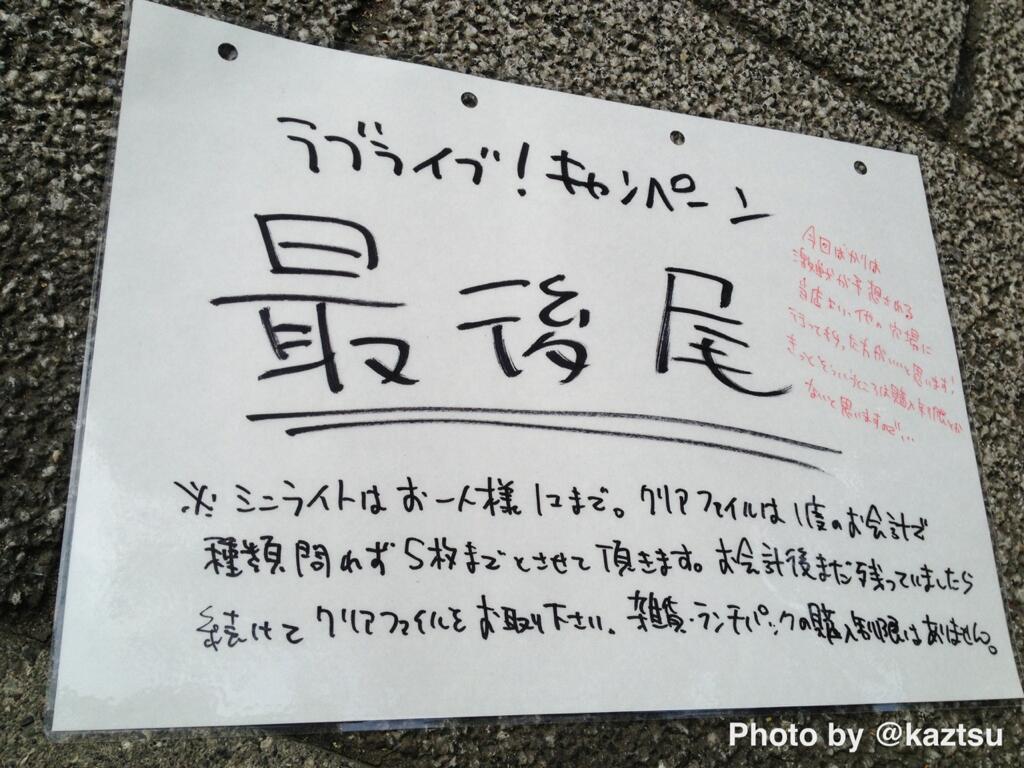 ラブライブ!キャンペーン
最後尾
今回ばかりは
激戦が予想される
当店より、他の穴場に
行って和った方がいいと思います!
きっとそういうところは購入制限とか
ないと思いますので…
※ミニライトはお一人様1コまで。クリアファイルは1度のお会計で
種類問わず5枚までとさせて頂きます。お会計後まだ残っていましたら
続けてクリアファイルをお取り下さい。雑貨・ランチパックの購入制限はありません。
Photo by @kaztsu